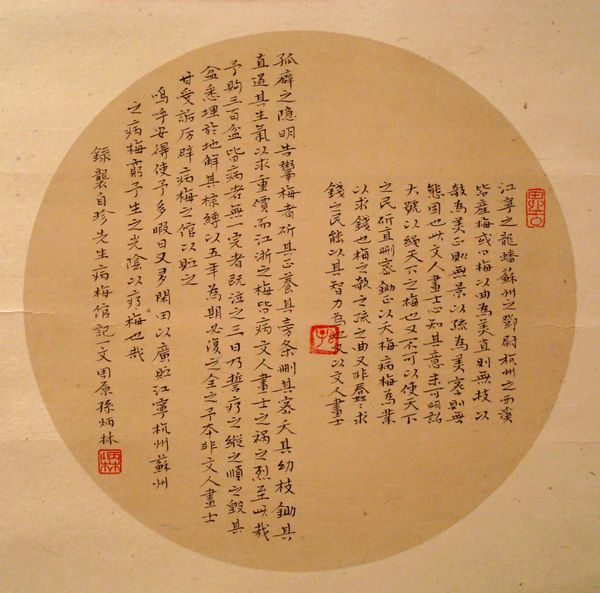 江寧之龍蟠蘇州之鄧尉杭州之西溪
皆產梅或曰梅以曲為美直則無枝以
欹為美正則無景以疏為美密則無
態固也此文人畫士心知其意未可明詔
大號以繩天下之梅也又不可以使天下
之民斫直刪密鋤正以夭梅病梅為業
以求錢也梅之欹之疏之曲又非蠢〻求
錢之民能以其智力為也又以文人畫士
孤癖之隱明告鬻梅者斫其正養其旁条刪其密夭其幼枝鋤其
直遏其生氣以求重價而江浙之梅皆病文人畫士之禍之烈至此哉
予購三百盆皆病者無一完者既泣之三日乃誓療之縱之順之毀其
盆悉埋於地解其棕縛以五年為期必復之全之予本非文人畫士
甘受詬厲辟病梅之館以貯之
嗚呼安得使予多暇日又多閑田以廣貯江寧杭州蘇州
之病梅窮予生之光陰以療梅也哉
錄龔自珍先生病梅館記一文周原孫炳林
炳林